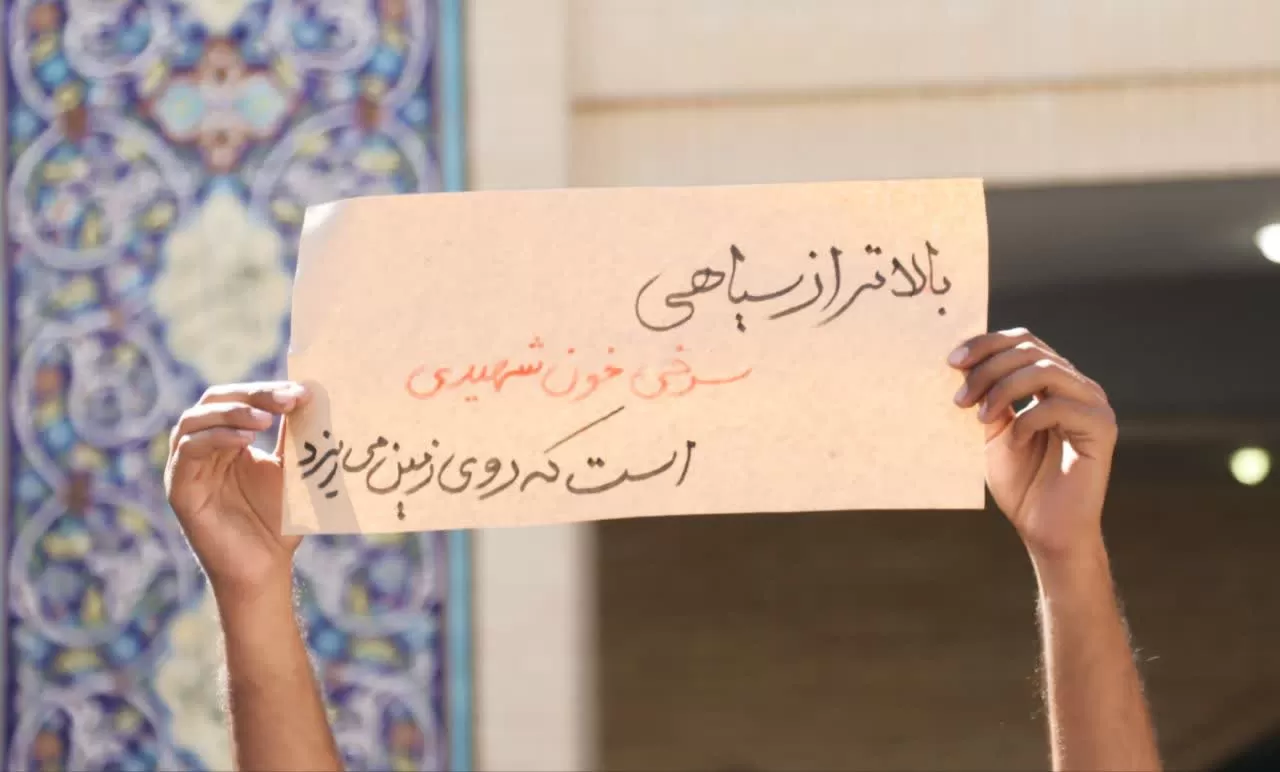 بالاتر از سیاهی
سرخی خون شهیدی
است که روی زمین می ریزد